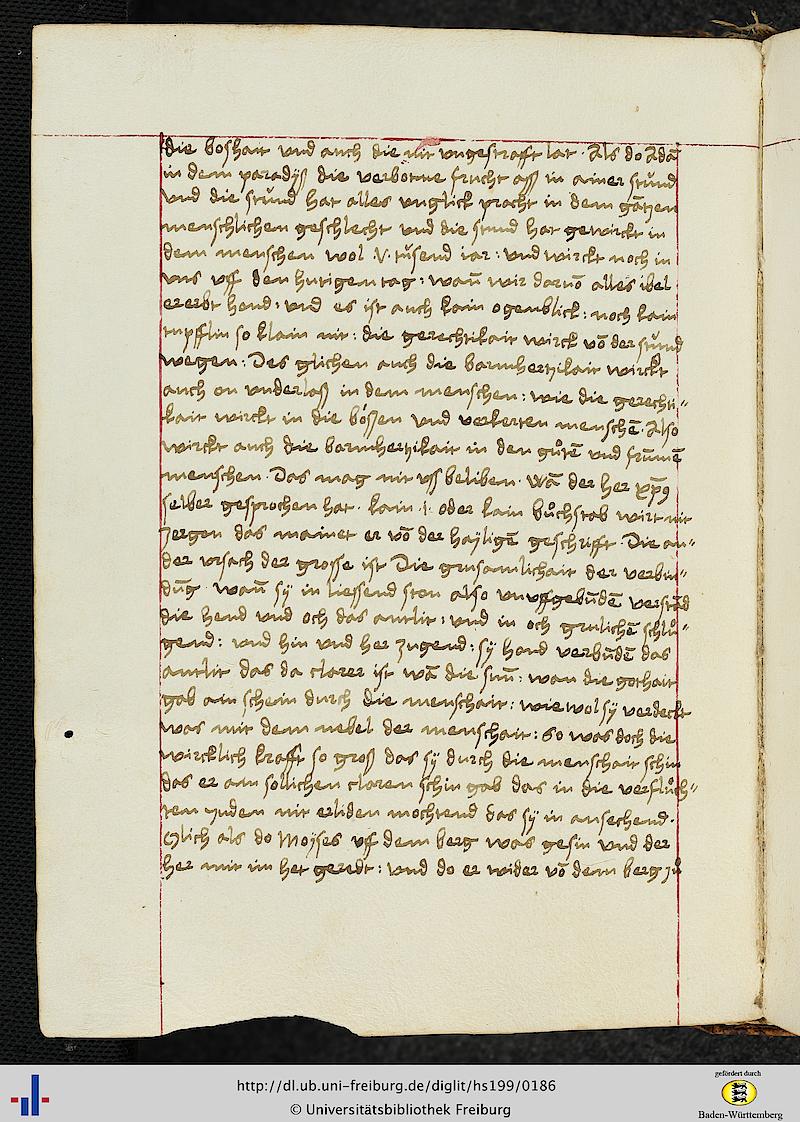 die boshait vnd auch die nit vngestrafft lat · Als do Adā
in dem paradyß die verbotne frucht aß in ainer stund
vnd die stund hat alles vnglick pracht in dem gātzen
menschlichen geschlecht vnd die stund hat gewirckt in
dem menschen wol · v · tusend iar : vnd wirckt noch in
vns vff den hutigen tag : wan̄ wir daruō alles ibel
ererbt hend : vnd es ist auch kain ogenblick : noch kain
tupfflin so klain nit : die gerechtikait wirck vō der stund
wegen : Des glichen auch die barmhertzikait wirckt
auch on vnderlaß in dem menschen : wie die gerechti„
kait wirckt in die bößen vnd verkerten menschē · Also
wirckt auch die barmhertzikait in den gůtē vnd frūmē
menschen · Das mag nit vss beliben · wā der her xp̄s
selber gesprochen hat · kain · i · oder kain bůchstab wirt nit
zergen das mainet er vō der hayligē geschrifft · Die an„
der vrsach der grosse ist Die grusamlichait der verbin„
dūg wan̄ sy in liessend ston also vnuffgebūdē verstād
die hend vnd och das antlit : vnd in och grulichē schlů„
gend : vnd hin vnd her zugend : sy hand verbūdē das
antlit das da clarer ist wā die sun̄ : wan die gothait
gab ain schein durch die menschait : wie wol sy verdeckt
was mit dem nebel der menschait : so was doch die
wircklich krafft so groß das sy durch die menschait schin
das er ain sollichen claren schin gab das in die verflůch„
ten juden nit erliden mochtend das sy in ansechend ·
Glich als do Moyses vff dem berg was gesin vnd der
her mit im het geredt : vnd do er wider vō dem berg zů
http://dl.ub.uni-freiburg.de/diglit/hs199/0186
© Universitätsbibliothek Freiburg
gefördert durch
Baden-Württemberg